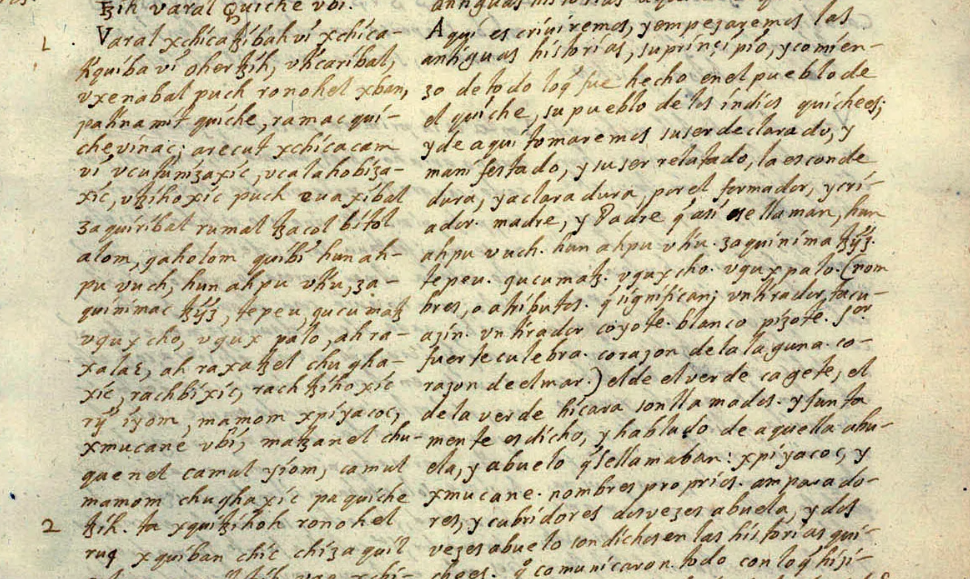 ꜩih varal Quiche vbi.
Varal xchicaꜩibah vi xchica-
tiquiba vi oher tzih, vticaribal,
vxenabal puch ronohel xban,
pa tinamit quiche, ramac qui-
che vinac; arecut xchicacam
vi vcutunizaxic, vcalahobiza-
xic, vꜩihoxic puch euaxibal
zaquiribal rumal tzacol bitol
alom, qaholom quibi hun ah-
pu vuch, hun ahpu vtiu, za-
quinimac tzÿz, tepeu, qucumatz
vqux cho, vqux palo, ah ra-
xa lac, ah raxa tzel chugha-
xic, rachbixic, rachtzihoxic
rÿ iyom, mamom xpiyacoc,
xmucane vbi, matzanel chu-
quenel camul yiom, camul
mamom chughaxic pa quiche
tzih. ta xquitzihoh ronohel
ruq xquiban chic chi zaquil
antiguas historias
Aqui escriuiremos, y empezaremos las
antiguas historias, su prinçipio, y comien-
zo de todo loq̃ fue hecho en el pueblo de
el quiche, su pueblo de los indios quichees;
y de aqui tomaremos su ser declarado, y
manifestado, y su ser relatado, la esconde
dura, y aclaradura, por el formador, y cri-
ador. madre, y Padre q̃ asi se llaman, hun
ahpu vuch. hun ahpu vtiu. zaquinima tzÿz.
tepeu. qucumatz. vqux cho. vqux palo. (nom
bres, o atributos. q̃ significan; vn tirador, tacu-
azin. vn tirador coyote. blanco pizote. for
fuerte culebra. corazon de la laguna. co-
razon de el mar.) el de el verde cagete, el
de la verde hicara son llamados. y junta
mente es dicho, y hablado de aquella abu-
ela, y abuelo q̃ se llamaban: xpiyacoc, y
xmucane. nombres proprios. amparado-
res, y cubridores dos vezes abuela, y dos
vezes abuelo son dichos en las historias qui-
chees. q̃ comunicaron todo con loq̃ hizi-
1
2